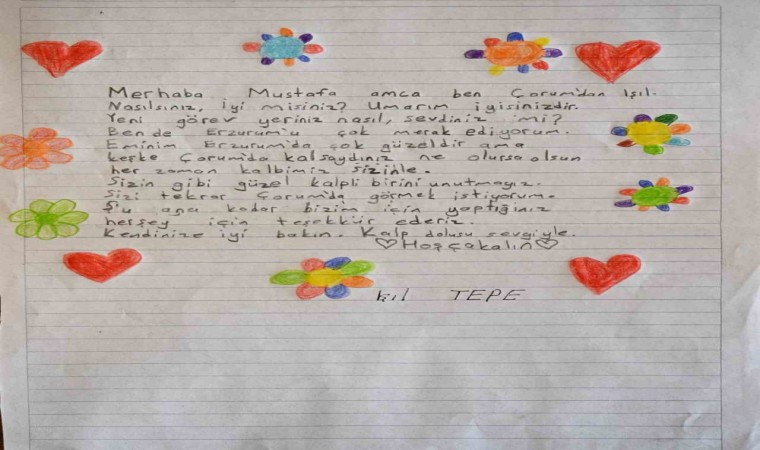 Merhaba Mustafa amca ben Çorum'dan Işıl.
Nasılsınız, iyi misiniz? Umarım iyisinizdir.
Yeni görev yeriniz nasıl, sevdiniz mi?
Ben de Erzurum'u çok merak ediyorum.
Eminim Erzurum'da çok güzeldir ama
keşke Çorum'da kalsaydınız ne olursa olsun
her zaman kalbimiz sizinle.
Sizin gibi güzel kalpli birini unutmayız.
Sizi tekrar Çorum'da görmek istiyorum.
Şu ana kadar bizim için yaptığınız
herşey için teşekkür ederiz.
Kendinize iyi bakın. Kalp dolusu sevgiyle.
♡Hoşçakalın♡
Işıl TEPE